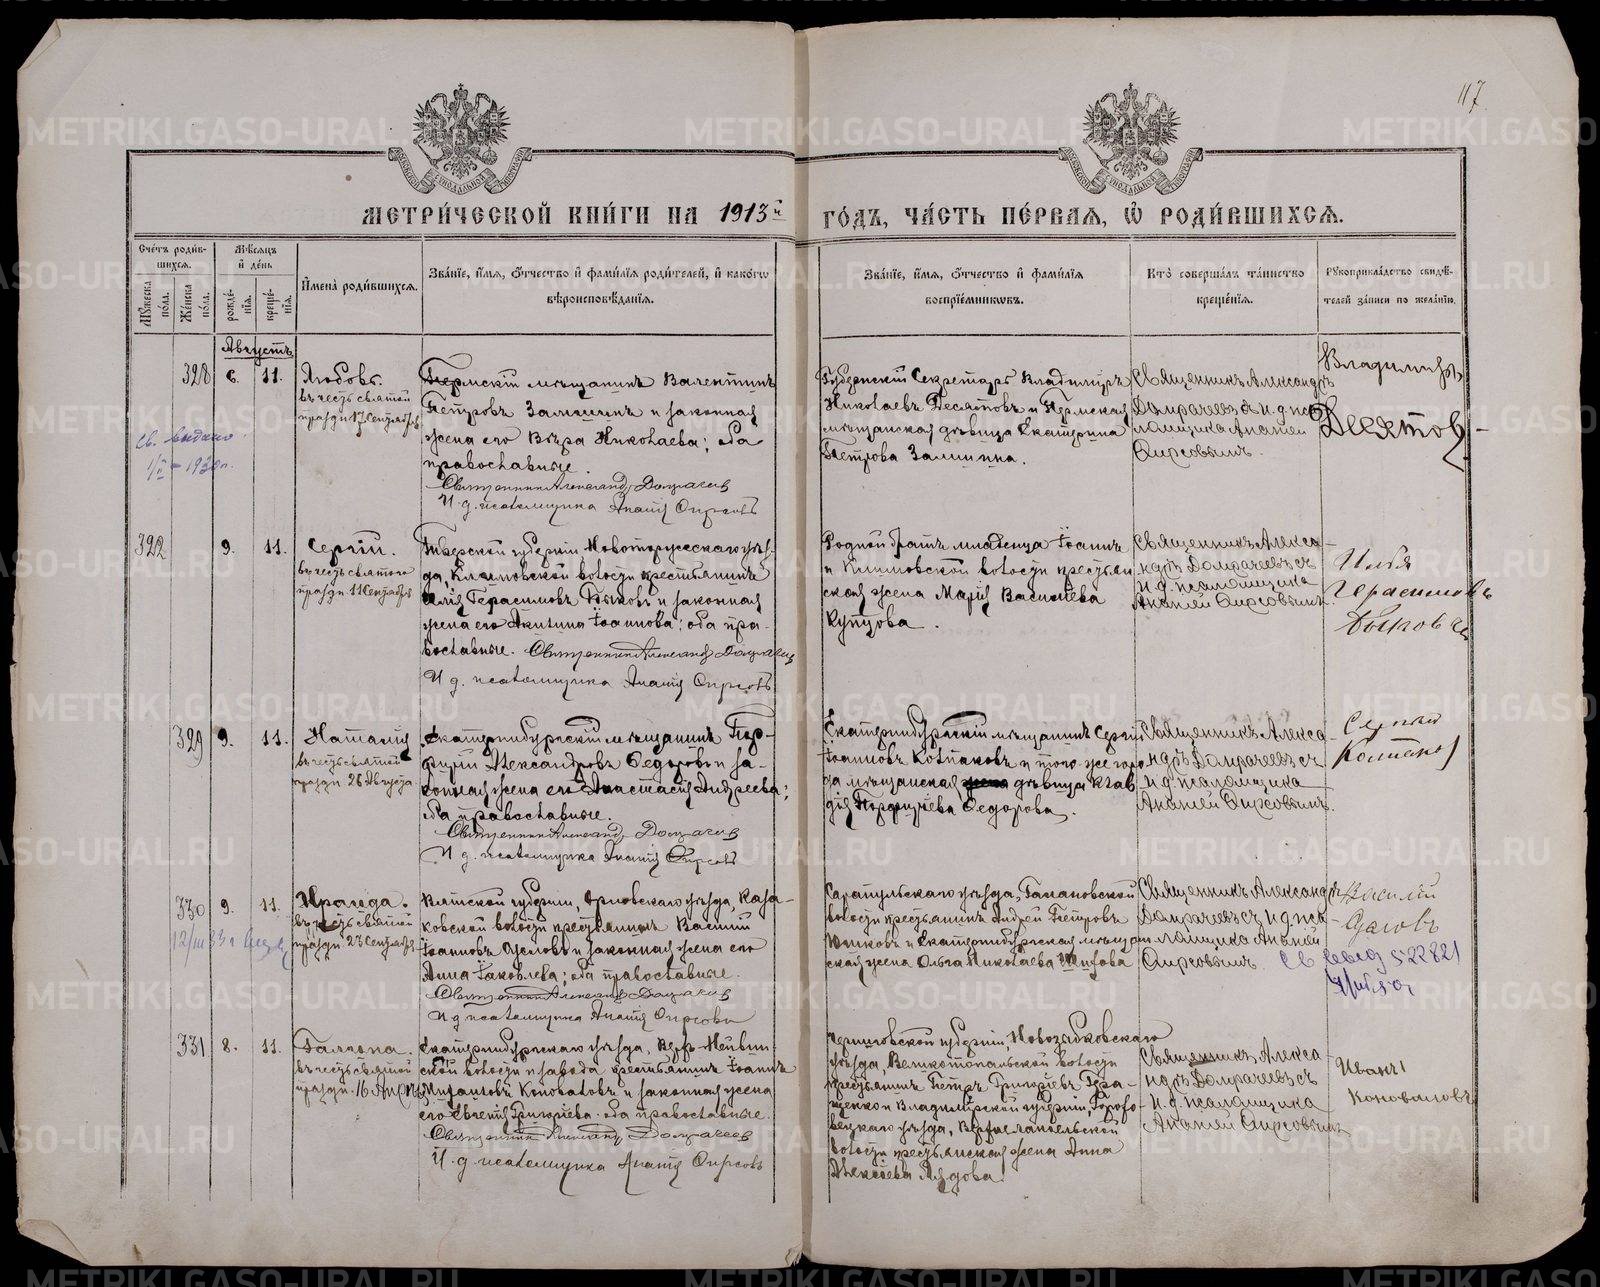 117
МОСКОВСКОЙ СѴНОДАЛЬНОЙ ТИПОГРАФІИ
МОСКОВСКОЙ СѴНОДАЛЬНОЙ ТИПОГРАФІИ
МЕТРИЧЕСКОЙ КНИГИ НА 1913й ГОДЪ, ЧАСТЬ ПЕРВАЯ, Ѡ РОДИВШИХСЯ.
Счетъ родив-
шихся.
Мужеска пола.
Женска пола.
Мѣсяцъ
и день
рожде-
нія.
креще-
нія.
Имена родившихся.
Званіе, имя, отчество и фамилія родителей, и какого
вѣроисповѣданія.
Званіе, имя, отчество и фамилія
воспріемниковъ.
Кто совершалъ таинство
крещенія.
Рукоприкладство свидѣ-
телей записи по желанію.
Августъ
328 6. 11. Любовь.
въ честь святой
празд. 17 Сентября
св. выдано
Пермскій мѣщанинъ Валентинъ
Петровъ Замшинъ и законная
жена его Вѣра Николаева; оба
православные.
Священникъ Александръ Домрачевъ
И. д. псаломщика Ананій Фирсовъ
Губернскій Секретарь Владиміръ
Николаевъ Десятовъ и Пермская
мѣщанская дѣвица Екатерина
Петрова Замшина.
Священникъ Александръ
Домрачевъ съ и. д. пса
ломщика Ананіем
Фирсовымъ.
Владиміръ
Десятовъ
322 9. 11. Сергій.
въ честь святого
празд. 11 Сентября
Тверской губерніи Новоторжескаго уѣз-
да, Климовской волости крестьянинъ
Илія Герасимовъ Быковъ и законная
жена его Акилина Іоаннова; оба пра-
вославные. Священникъ Александръ Домрачевъ
И. д. псаломщика Ананій Фирсовъ
Родной братъ младенца Іоаннъ
и Климовской волости крестьян
ская жена Марія Василіева
Купцова.
Священникъ Алекса-
ндръ Домрачевъ съ
и. д. псаломщика
Ананіем Фирсовымъ.
Илья
Герасимовъ
Быковъ
329 9. 11. Наталія
въ честь святой
празд. 26 Августа
Екатеринбургскій мѣщанинъ Пор-
фирій Александровъ Ѳедоровъ и за-
конная жена его Анастасія Андреева;
оба православные.
Священникъ Александръ Домрачевъ
И. д. псаломщика Ананій Фирсовъ
Екатеринбургскій мѣщанинъ Сергій
Іоанновъ Колпаковъ и того же горо
да мѣщанская дѣвица Клав
дія Порфиріева Ѳедорова.
Священникъ Алекса-
ндръ Домрачевъ съ
и. д. псаломщика
Ананіем Фирсовымъ.
Сергѣй
Колпаковъ
330 9. 11. Ираида.
въ честь святой
празд. 23 Сентября
Вятской губерніи, Орловскаго уѣзда, Каза-
ковской волости крестьянинъ Василій
Іоанновъ и законная жена его
Анна Іаковлева; оба православные.
Священникъ Александръ Домрачевъ
И. д. псаломщика Ананій Фирсовъ
Сарапульскаго уѣзда, Галановской
волости крестьянинъ Андрей Петровъ
и Екатеринбургская мѣщан
ская жена Ольга Николаева
Священникъ Александръ
Домрачевъ съ и. д. пса-
ломщика Ананіем
Фирсовымъ.
Василій
522821
331 8. 11. Галина.
въ честь святой
празд. 16 Апрѣля
Екатеринбургскаго уѣзда, Верх-Нейвин-
ской волости и завода крестьянинъ Іоаннъ
Коноваловъ и законная жена
его Евгенія Григоріева. оба православные.
Священникъ Александръ Домрачевъ
И. д. псаломщика Ананій Фирсовъ
Черниговской губерніи, Новозыбковскаго
уѣзда, Великотопальской волости
крестьянинъ Петръ Григоріевъ Гера-
щенко и Владимірской губерніи, Горохо-
вецкаго уѣзда, волости крестьянская жена Анна
Алексѣева
Священникъ Алекса-
ндръ Домрачевъ съ
и. д. псаломщика
Ананіем Фирсовымъ
Иванъ
Коноваловъ
METRIKI.GASO-URAL.RU